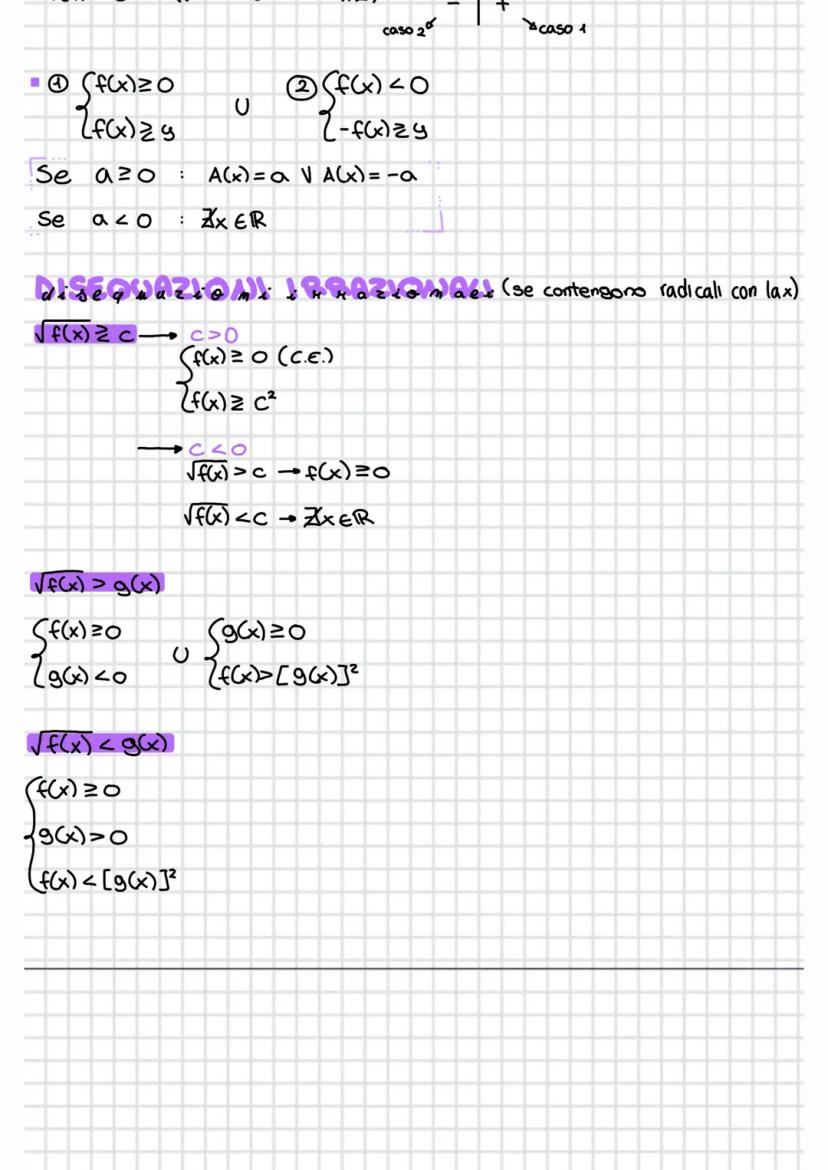 - | +
caso 2 caso 1
① {f(x) ≥ 0 ∪ ② {f(x) < 0
{f(x) ≷ y {-f(x) ≷ y
Se a ≥ 0 : A(x) = a ∨ A(x) = -a
Se a < 0 : ∄x ∈ ℝ
DISEQUAZIONI IRRAZIONALI (se contengono radicali con la x)
√f(x) ≷ c → c > 0
{f(x) ≥ 0 (C.E.)
{f(x) ≷ c²
→ c < 0
√f(x) > c → f(x) ≥ 0
√f(x) < c → ∄x ∈ ℝ
√f(x) > g(x)
{f(x) ≥ 0 ∪ {g(x) ≥ 0
{g(x) < 0 {f(x) > [g(x)]²
√f(x) < g(x)
{f(x) ≥ 0
{g(x) > 0
{f(x) < [g(x)]²